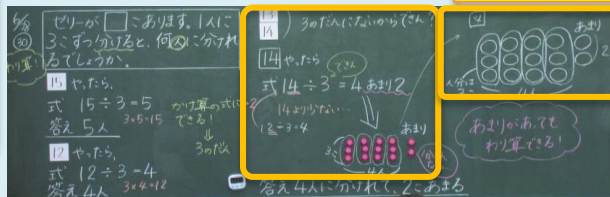 6/28
30
ゼリーが□こあります。1人に
3こずつ分けると、何人に分けれ
るでしょうか。
わり算！
15 やったら、
式 15÷3=5
3×5=15
答え 5人
かけ算の式に
できる！
⇓
3のだん
12 やったら、
式 12÷3=4
3×4=12
答え 4人
13
14
3のだんにないからでん？
14 やったら
できん
式 14÷3=4 あまり2
14より少ない…
12÷3=4
3こ
4人
あまり
答え 4人に分けれて、2こあまる
あまり
2
4人
あまりがあっても
わり算できる！